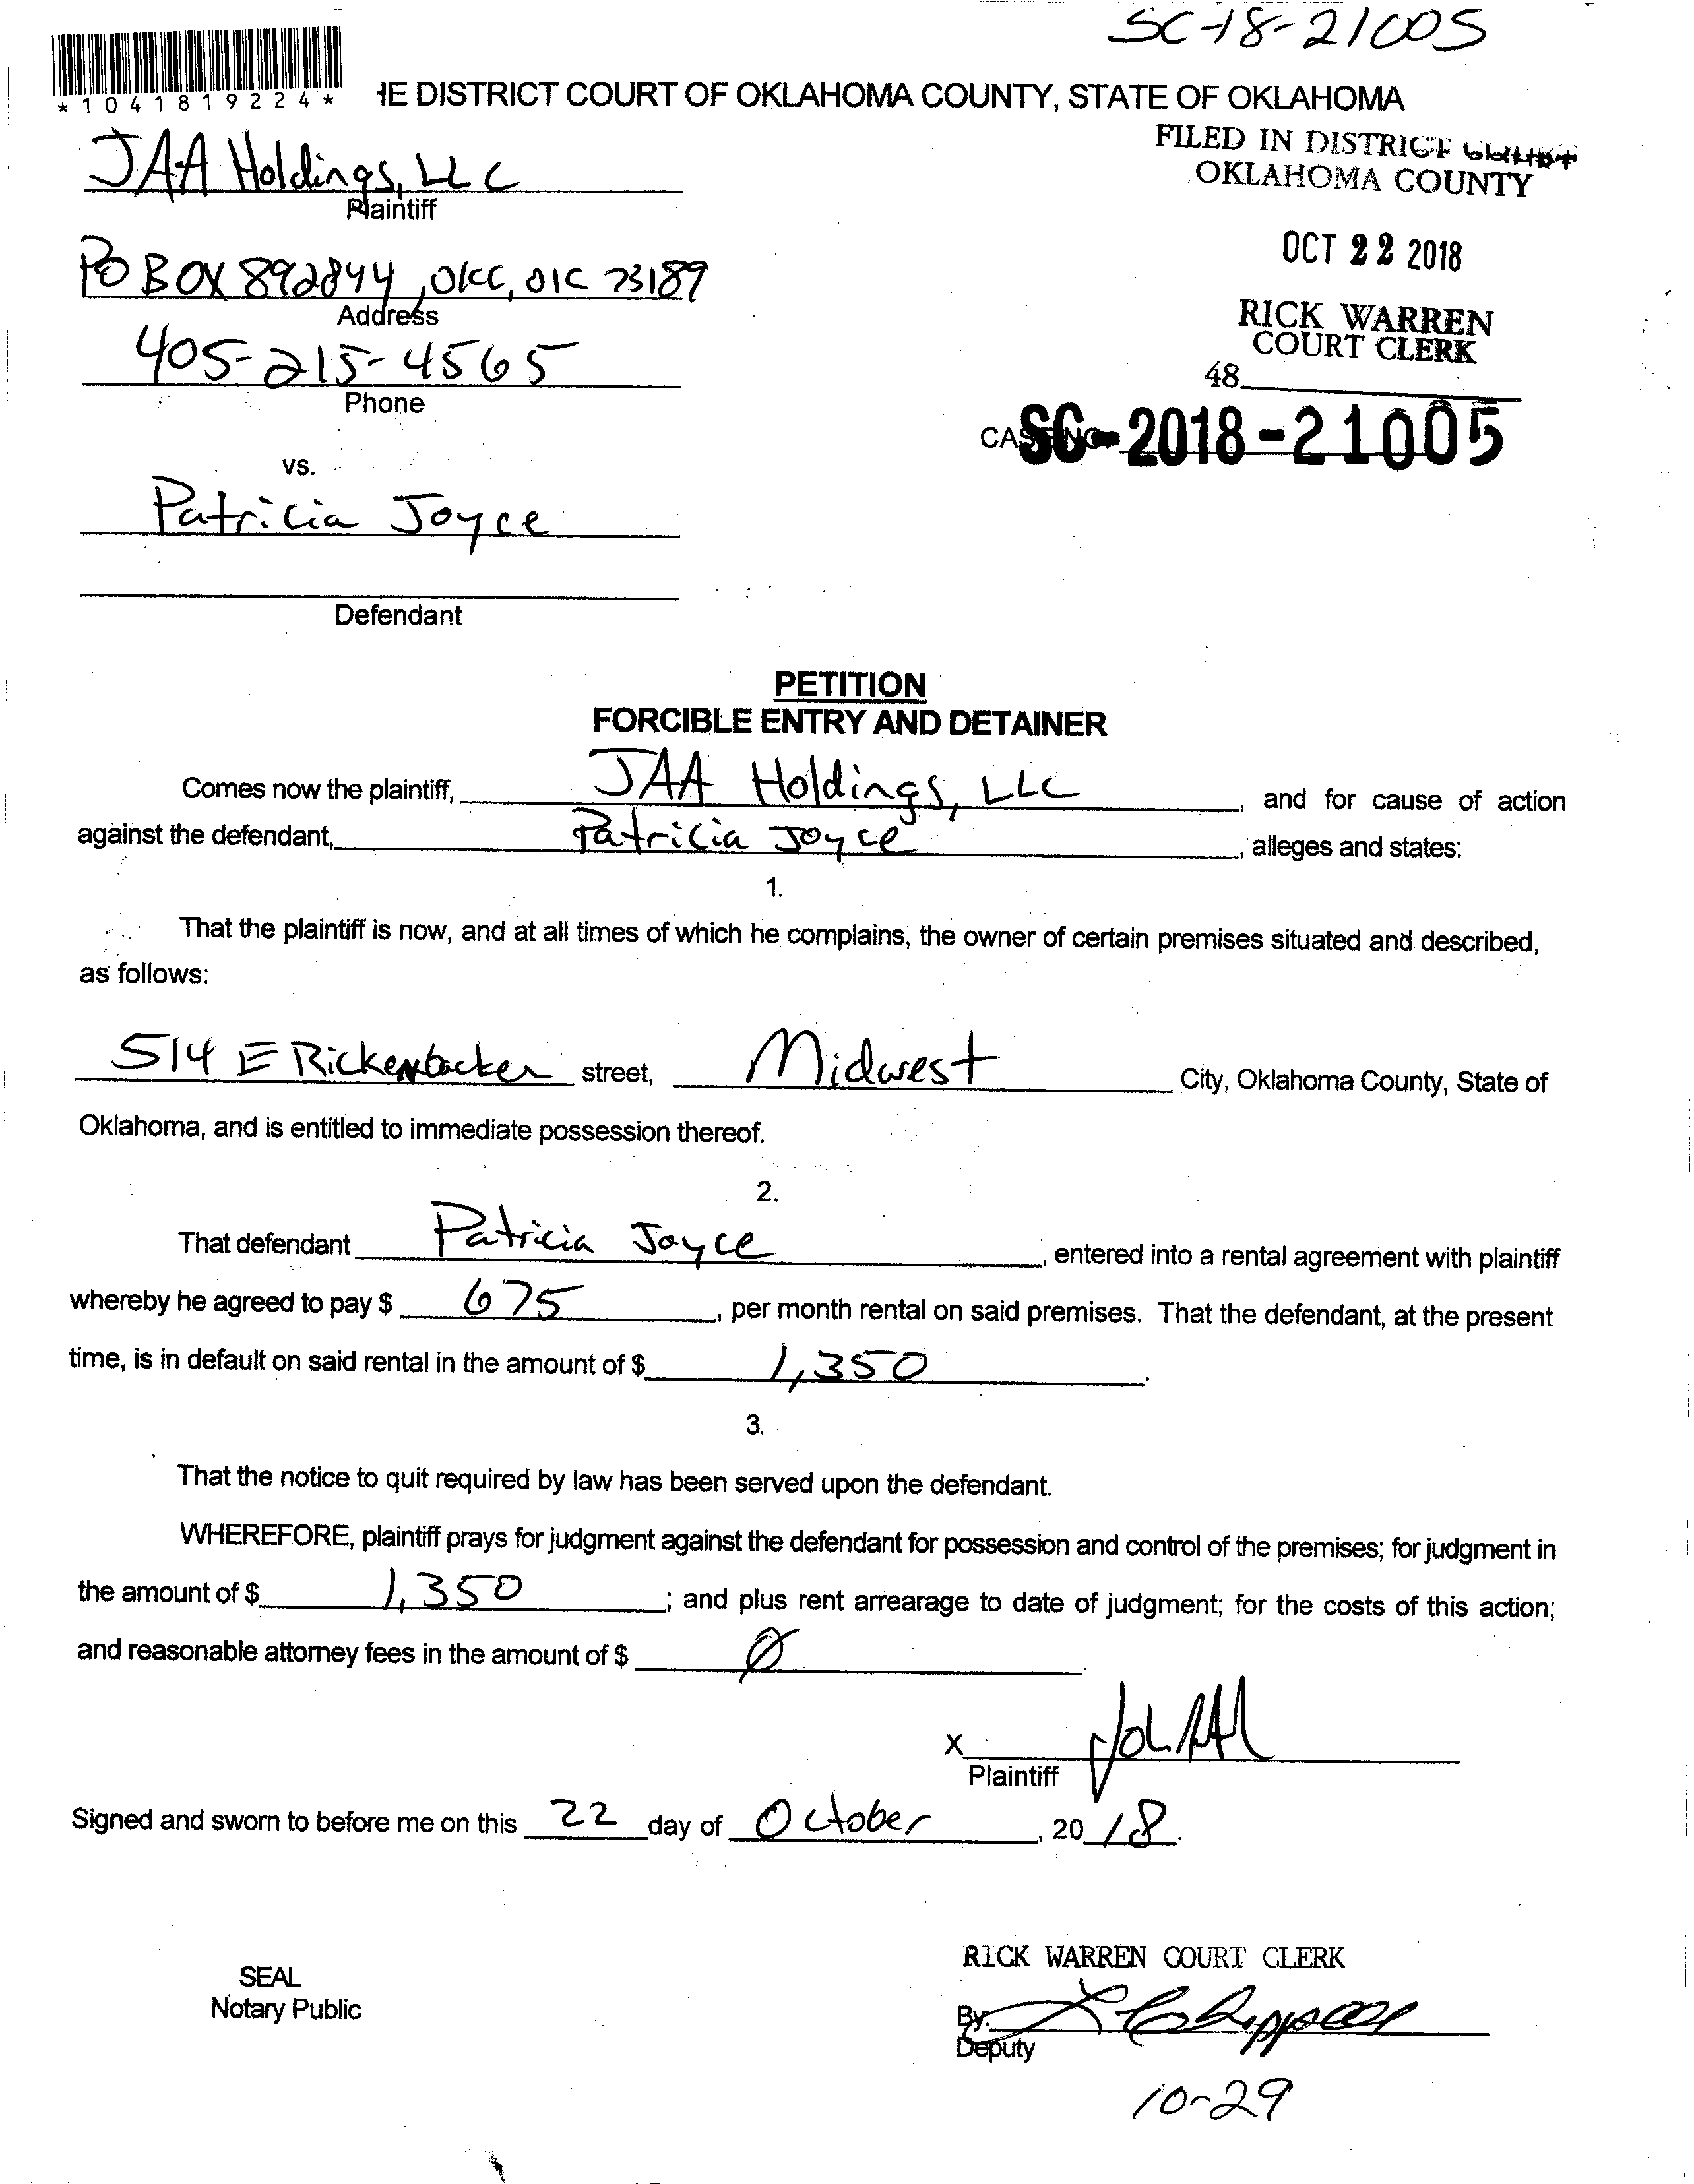 SC-18-21005
*1041819224*
HE DISTRICT COURT OF OKLAHOMA COUNTY, STATE OF OKLAHOMA
JAA Holdings, LLC
Plaintiff
FILED IN DISTRICT COURT
OKLAHOMA COUNTY
PO BOX 892844, OKC, OK 73189
Address
OCT 22 2018
405-215-4565
Phone
RICK WARREN
COURT CLERK
48
CASE NO. SC-2018-21005
vs.
Patricia Joyce
Defendant
PETITION
FORCIBLE ENTRY AND DETAINER
Comes now the plaintiff, JAA Holdings, LLC, and for cause of action
against the defendant, Patricia Joyce, alleges and states:
1.
That the plaintiff is now, and at all times of which he complains, the owner of certain premises situated and described,
as follows:
514 E Rickenbacker street, Midwest City, Oklahoma County, State of
Oklahoma, and is entitled to immediate possession thereof.
2.
That defendant Patricia Joyce, entered into a rental agreement with plaintiff
whereby he agreed to pay $ 675, per month rental on said premises. That the defendant, at the present
time, is in default on said rental in the amount of $ 1,350.
3.
That the notice to quit required by law has been served upon the defendant.
WHEREFORE, plaintiff prays for judgment against the defendant for possession and control of the premises; for judgment in
the amount of $ 1,350; and plus rent arrearage to date of judgment; for the costs of this action;
and reasonable attorney fees in the amount of $ Ø.
X
Plaintiff
Signed and sworn to before me on this 22 day of October, 2018.
SEAL
Notary Public
RICK WARREN COURT CLERK
By:
Deputy
10-29